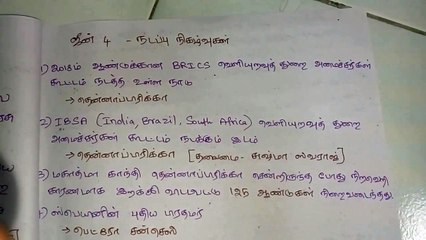 ஜூன் 4 - நடப்பு நிகழ்வுகள்
1) 2018ம் ஆண்டுக்கான BRICS வெளியுறவுத் துறை அமைச்சர்கள்
கூட்டம் நடத்த உள்ள நாடு
→ தென்னாப்பரிக்கா
2) IBSA (India, Brazil, South Africa) வெளியுறவுத் துறை
அமைச்சர்கள் கூட்டம் நடக்கும் இடம்
→ தென்னாப்பரிக்கா [தலைமை - சுஷ்மா ஸ்வராஜ்]
3) மகாத்மா காந்தி தென்னாப்பரிக்கா சென்றிருந்த போது நிறவெறி
காரணமாக இறக்கி விடப்பட்டு 125 ஆண்டுகள் நிறைவடைந்தது
4) ஸ்பெயினின் புதிய பிரதமர்
→ பெட்ரோ சன்செஸ்